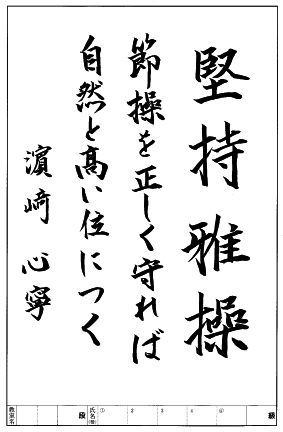 堅持雅操
節操を正しく守れば
自然と髙い位につく
濵﨑 心寧
級 ⑤ 4 3 2 ① 氏名 段 教室名